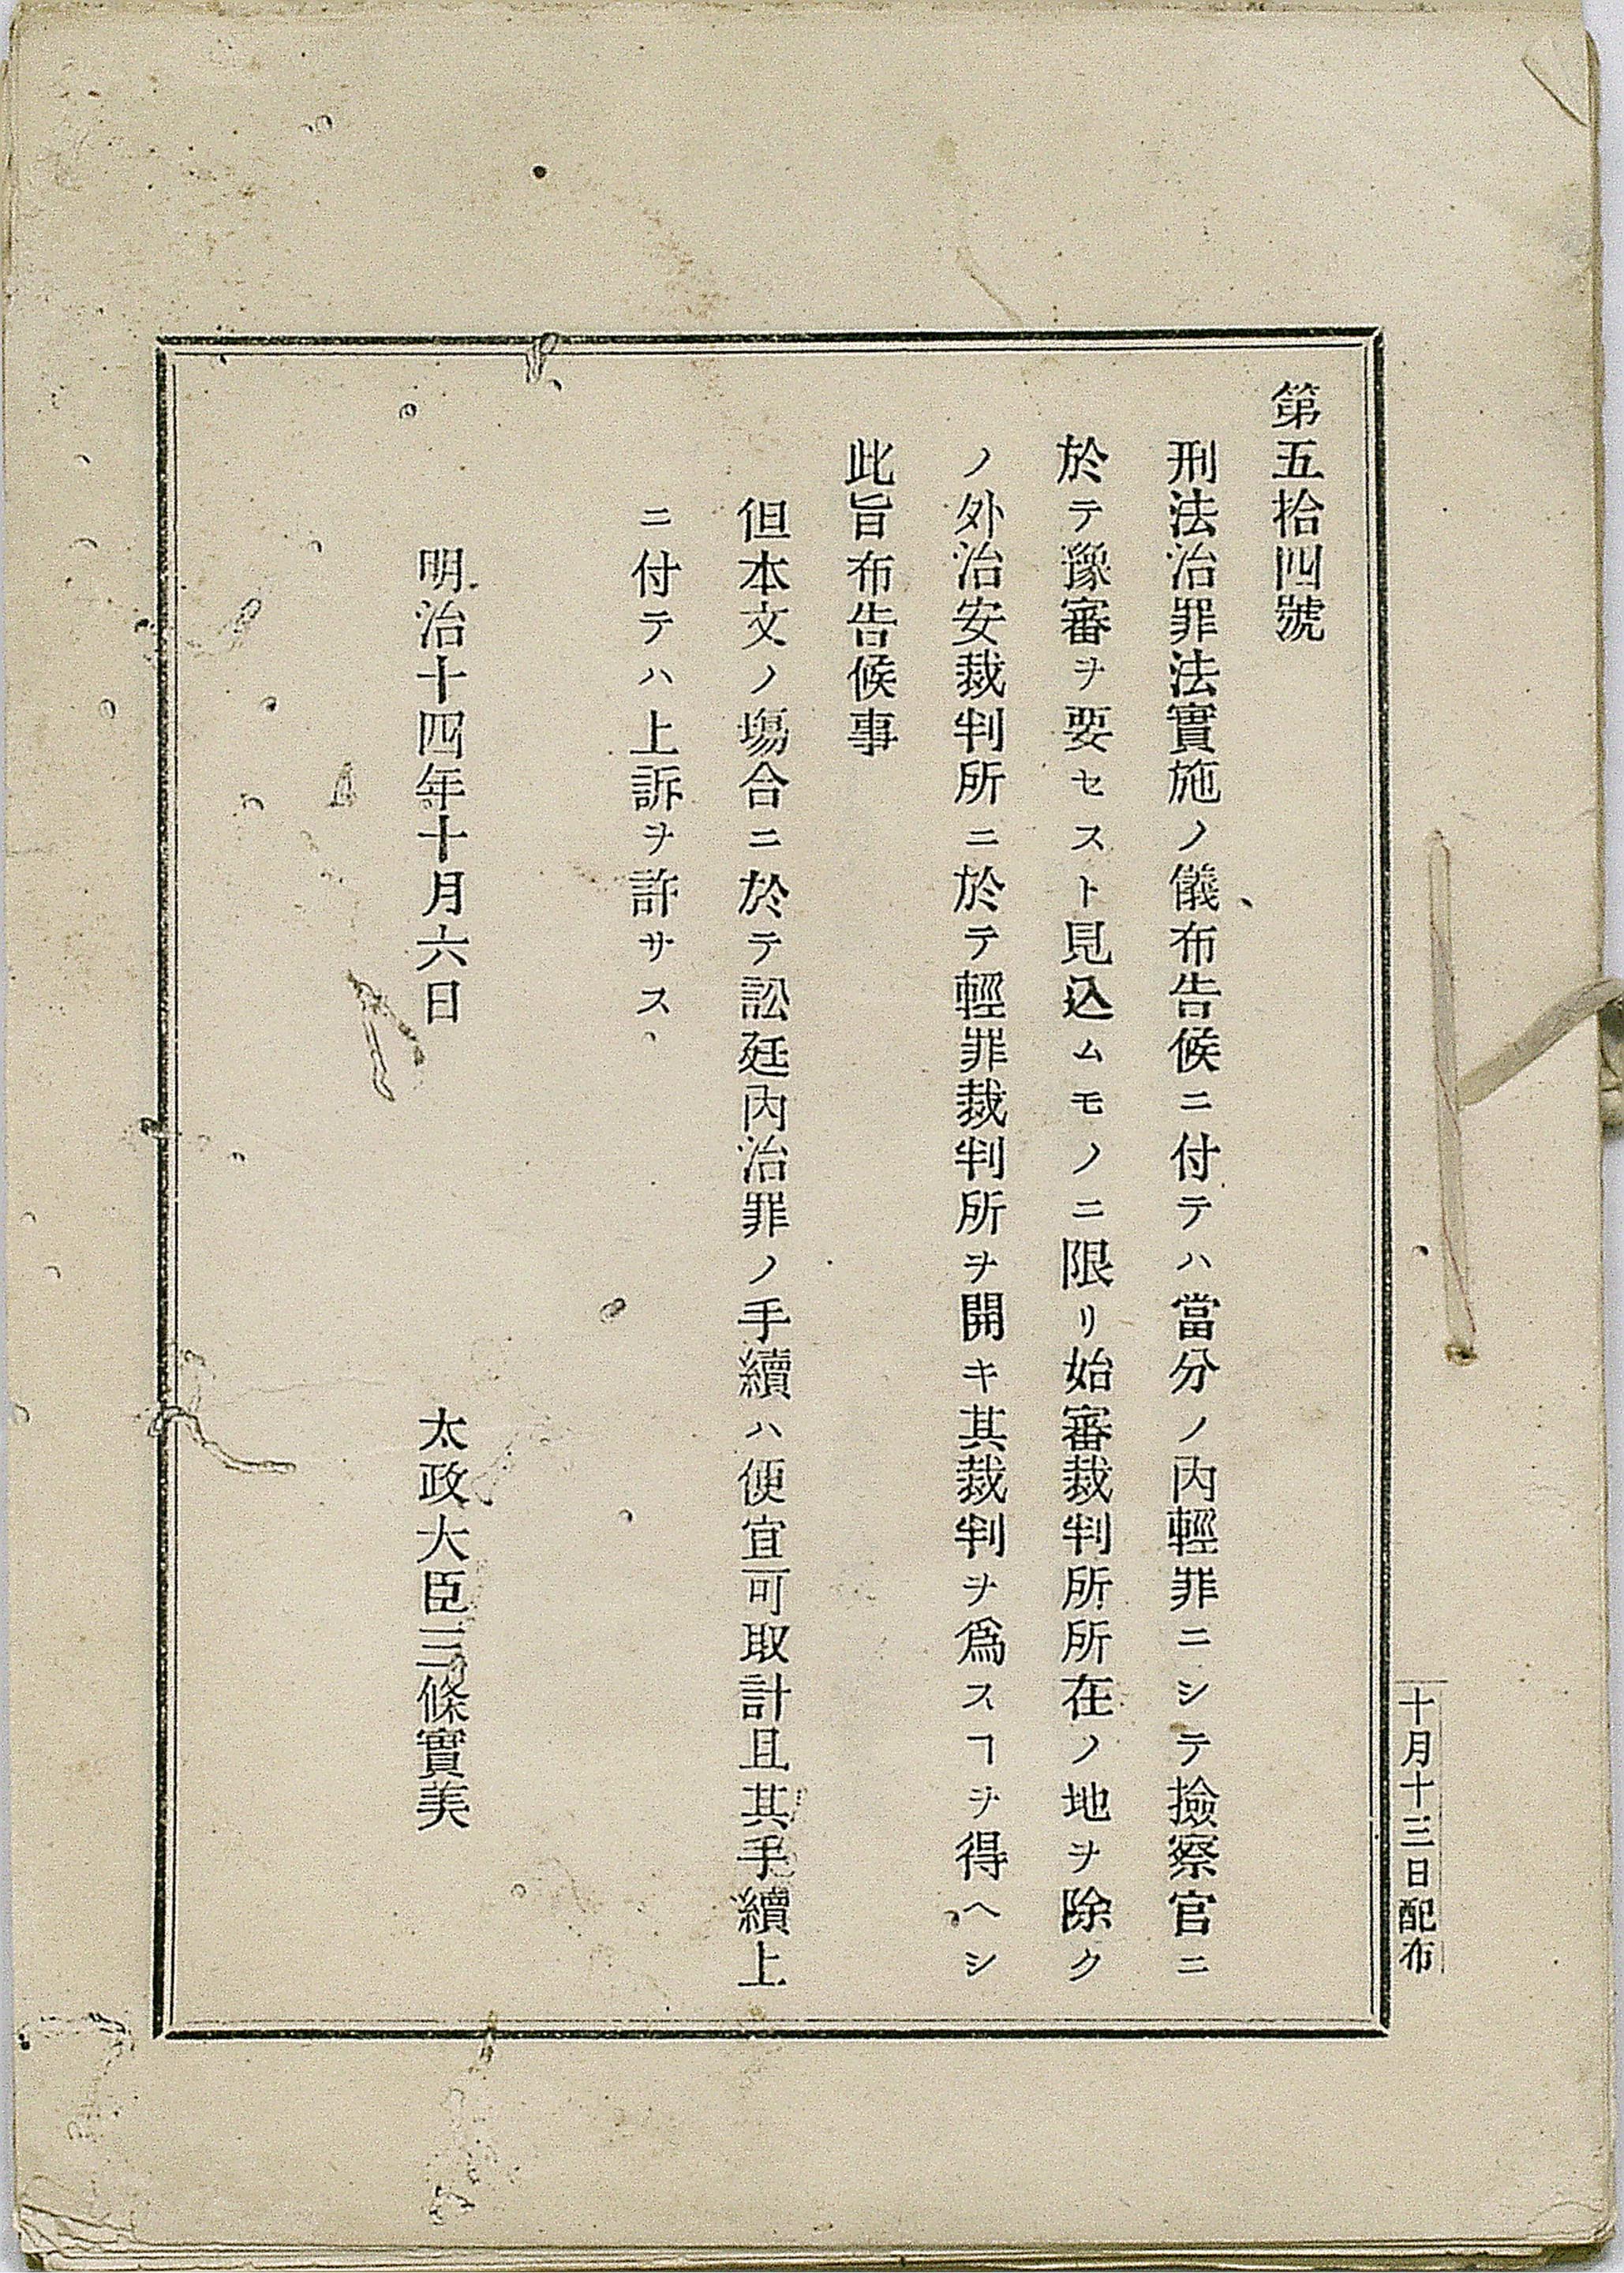 十月十三日配布
第五拾四號
刑法治罪法實施ノ儀布告候ニ付テハ當分ノ內輕罪ニシテ撿察官ニ
於テ豫審ヲ要セスト見込ムモノニ限リ始審裁判所所在ノ地ヲ除ク
ノ外治安裁判所ニ於テ輕罪裁判所ヲ開キ其裁判ヲ爲スヿヲ得ヘシ
此旨布告候事
但本文ノ塲合ニ於テ訟廷內治罪ノ手續ハ便宜可取計且其手續上
ニ付テハ上訴ヲ許サス
明治十四年十月六日 太政大臣三條實美